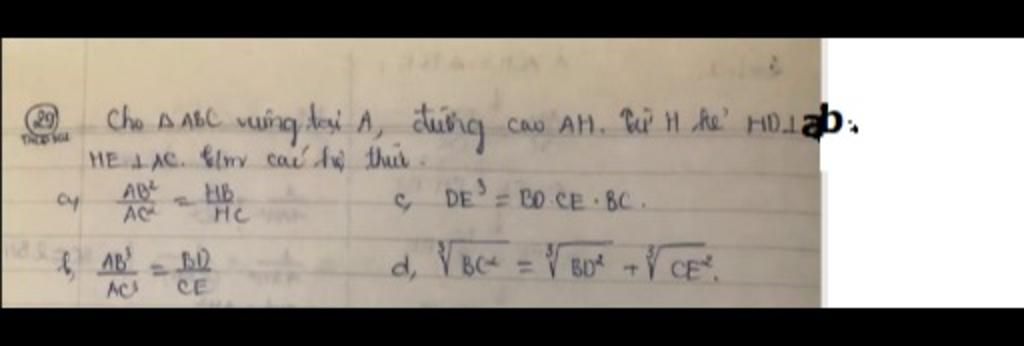 29 Cho Δ ABC vuông tại A, đường cao AH. Từ H kẻ HD⊥ab.
HE ⊥ AC. C/m các hệ thức.
a, AB²/AC² = HB/HC c, DE³ = BD·CE·BC.
b, AB³/AC³ = BD/CE d, ∛BC² = ∛BD² + ∛CE².